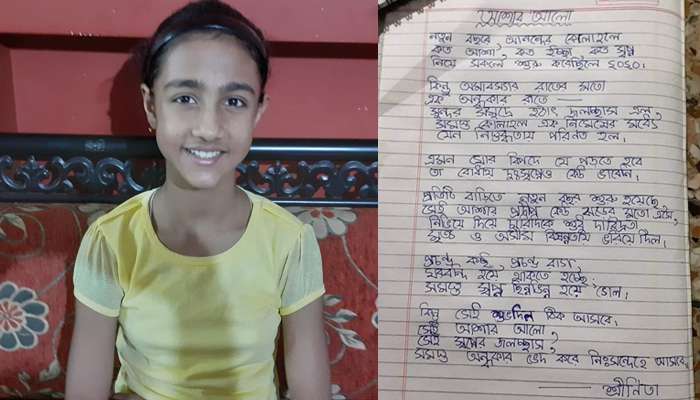 আশার আলো
নতুন বছরে আনন্দের কোলাহলে
কত আশা, কত ইচ্ছা, কত স্বপ্ন
নিয়ে সকলে শুরু করেছিলে ২০২০।
কিন্তু অমাবস্যার রাতের মতো
এক অন্ধকার রাতে —
সুন্দর সমুদ্রে হঠাৎ জলোচ্ছ্বাস এল,
সমস্ত কোলাহল এক নিমেষের মধ্যে
যেন নিস্তব্ধতায় পরিনত হল।
এমন ঘোর বিপদে যে পড়তে হবে
তা বোধহয় দুঃস্বপ্নেও কেউ ভাবেনি।
প্রতিটি বাড়িতে নতুন বছর শুরু হয়েছে
সেই আশার প্রদীপ কেউ ঝড়ের মতো এসে,
নিভিয়ে দিয়ে চারিদিকে শুধু দারিদ্রতা
দুঃখ ও অসীম বিষন্নতায় ভরিয়ে দিল।
প্রচন্ড কষ্ট, প্রচন্ড বাধা,
ঘরবন্দি হয়ে থাকতে হচ্ছে,
সমস্ত স্বপ্ন ছিন্নভিন্ন হয়ে গেল।
কিন্তু সেই শুভদিন ঠিক আসবে।
সেই আশার আলো,
সেই সুখের জলোচ্ছ্বাস,
সমস্ত অন্ধকার ভেদ করে নিঃসন্দেহে আসবে।
— শ্রীনিতা